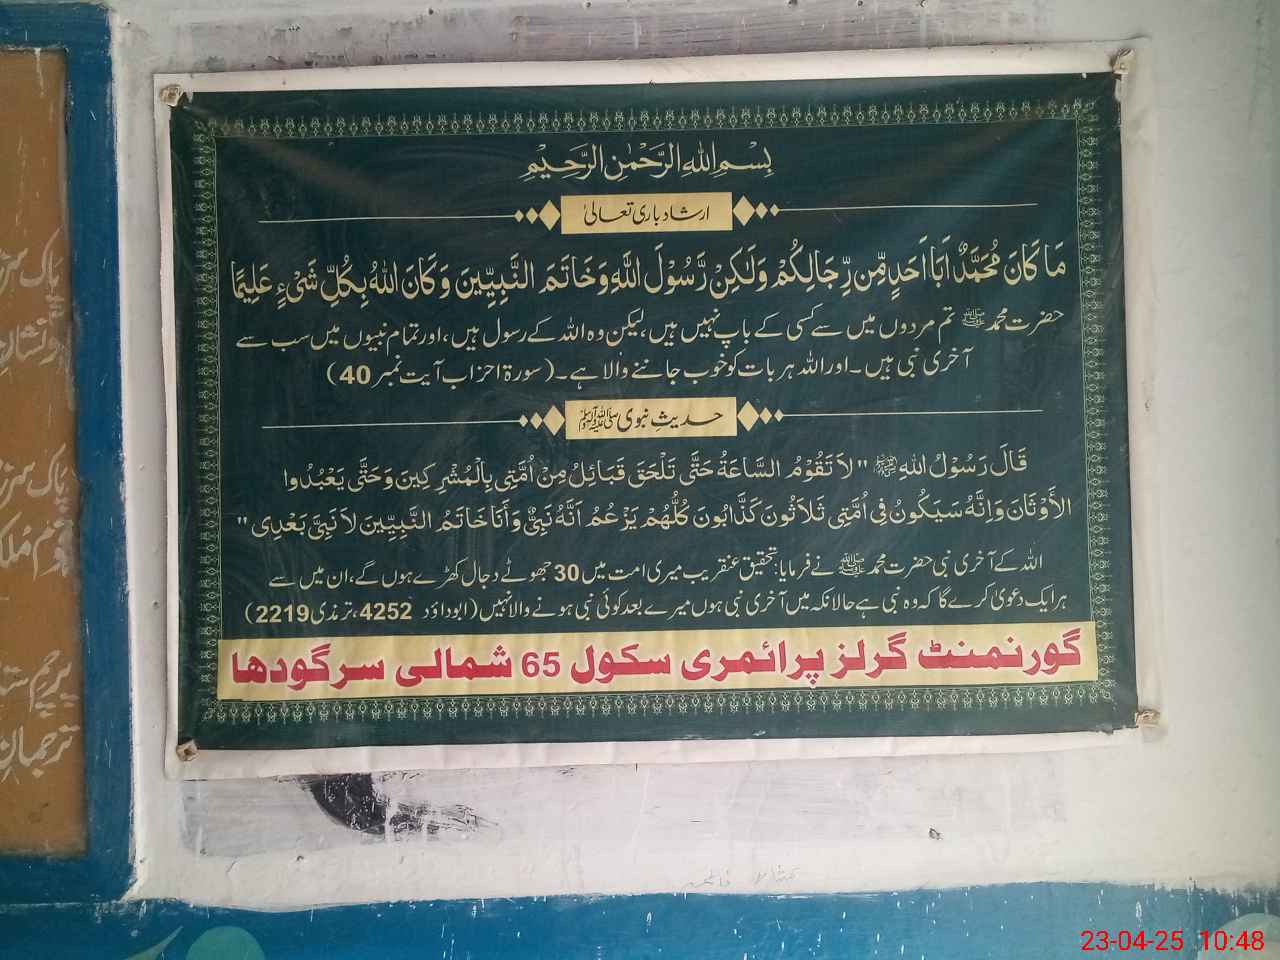 بِسْمِ اللهِ الرَّحْمٰنِ الرَّحِيْمِ
ارشاد باری تعالیٰ
مَا كَانَ مُحَمَّدٌ اَبَا اَحَدٍ مِّن رِّجَالِكُمْ وَلٰكِنْ رَّسُوْلَ اللّٰهِ وَخَاتَمَ النَّبِيِّينَ وَكَانَ اللهُ بِكُلِّ شَیْءٍ عَلِيمًا
حضرت محمد ﷺ تم مردوں میں سے کسی کے باپ نہیں ہیں، لیکن وہ اللہ کے رسول ہیں، اور تمام نبیوں میں سب سے
آخری نبی ہیں۔ اور اللہ ہر بات کو خوب جاننے والا ہے۔ (سورۃ احزاب آیت نمبر 40)
حدیثِ نبوی ﷺ
قَالَ رَسُوْلُ اللهِ ﷺ "لاَ تَقُوْمُ السَّاعَةُ حَتَّى تَلْحَقَ قَبَائِلُ مِنْ اُمَّتِى بِالْمُشْرِكِينَ وَحَتَّى يَعْبُدُوا
الأَوْثَانَ وَاِنَّهُ سَيَكُونُ فِى اُمَّتِى ثَلاَثُونَ كَذَّابُونَ كُلُّهُمْ يَزْعُمُ اَنَّهُ نَبِىٌّ وَأَنَا خَاتَمُ النَّبِيِّينَ لاَ نَبِىَّ بَعْدِى"
اللہ کے آخری نبی حضرت محمد ﷺ نے فرمایا: تحقیق عنقریب میری امت میں 30 جھوٹے دجال کھڑے ہوں گے، ان میں سے
ہر ایک دعویٰ کرے گا کہ وہ نبی ہے حالانکہ میں آخری نبی ہوں میرے بعد کوئی نبی ہونے والا نہیں (ابوداؤد 4252، ترمذی 2219)
گورنمنٹ گرلز پرائمری سکول 65 شمالی سرگودھا
پاک سرز
نشانِ
پاک سرز
قوم، ملک
پرچم ستا
ترجمانِ
23-04-25 10:48